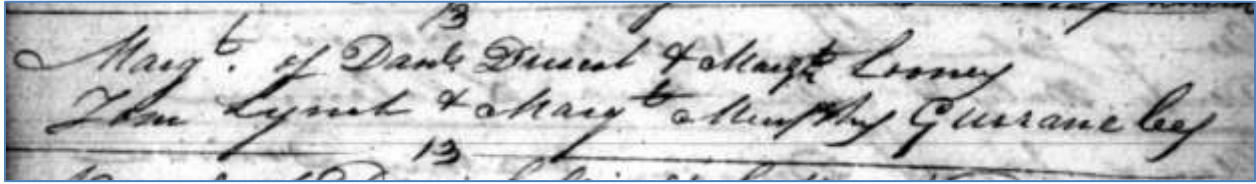 13
Marg.t of Danl. Driscol & Margt. Looney
Tom Lynch & Margt Murphy Gurrane
13